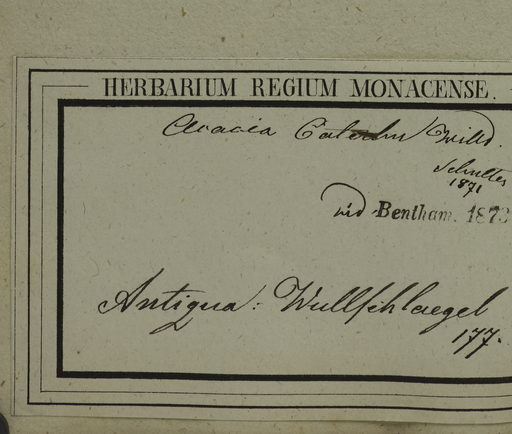 HERBARIUM REGIUM MONACENSE.
Acacia Catechu Willd.
Schultes
1871
vid Bentham. 1873
Antigua: Wullschlaegel
177.